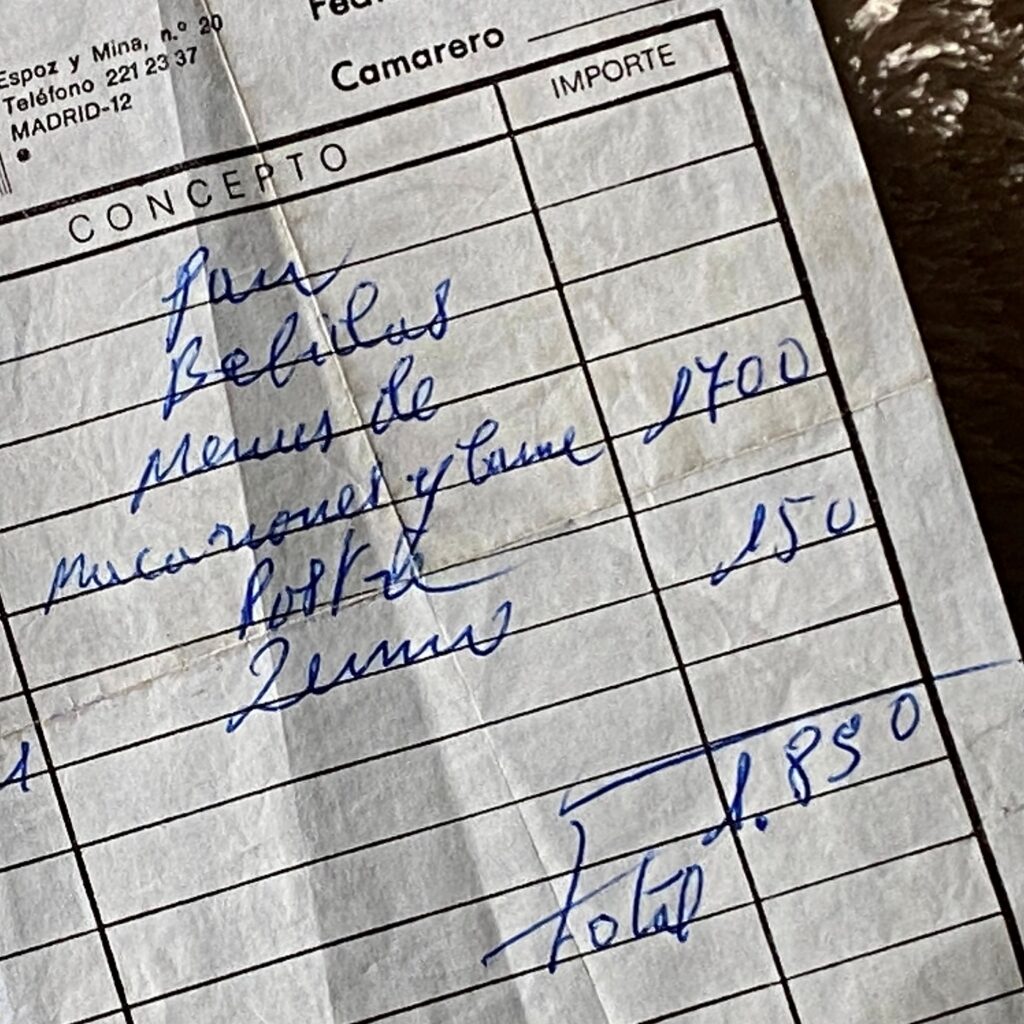 Espoz y Mina, n.º 20
Teléfono 221 23 37
MADRID-12
Camarero
CONCEPTO IMPORTE
Pan
Bebidas
Menus de
Macarrones y Carne 1700
Postre
1 Zumo 150
1.850
Total